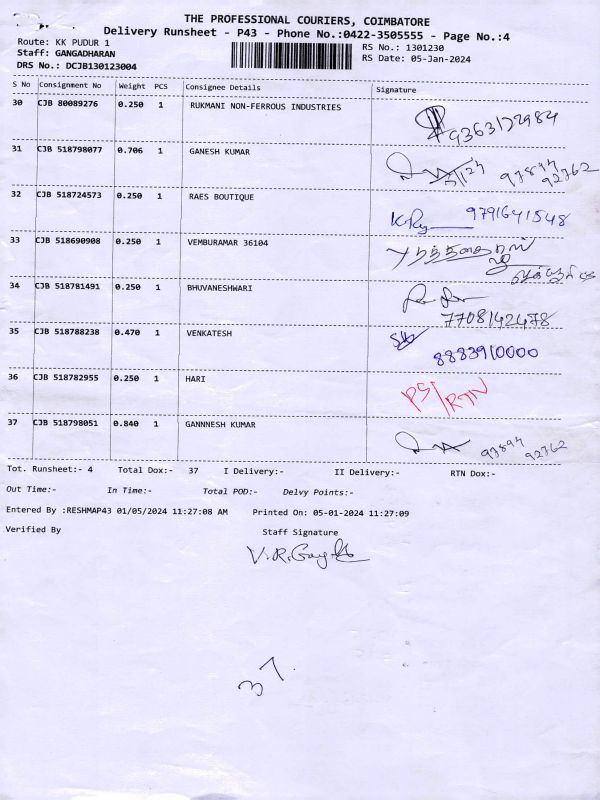 THE PROFESSIONAL COURIERS, COIMBATORE
Delivery Runsheet - P43 - Phone No.:0422-3505555 - Page No.:4
Route: KK PUDUR 1
RS No.: 1301230
Staff: GANGADHARAN
RS Date: 05-Jan-2024
DRS No.: DCJB130123004
S No Consignment No Weight PCS Consignee Details Signature
30 CJB 80089276 0.250 1 RUKMANI NON-FERROUS INDUSTRIES
9363122984
31 CJB 518798077 0.706 1 GANESH KUMAR
97894
92762
32 CJB 518724573 0.250 1 RAES BOUTIQUE
9791641548
33 CJB 518690908 0.250 1 VEMBURAMAR 36104
34 CJB 518781491 0.250 1 BHUVANESHWARI
7708142478
35 CJB 518788238 0.470 1 VENKATESH
8883910000
36 CJB 518782955 0.250 1 HARI
PS/RTN
37 CJB 518798051 0.840 1 GANNNESH KUMAR
97894
92762
Tot. Runsheet:- 4 Total Dox:- 37 I Delivery:- II Delivery:- RTN Dox:-
Out Time:- In Time:- Total POD:- Delvy Points:-
Entered By :RESHMAP43 01/05/2024 11:27:08 AM Printed On: 05-01-2024 11:27:09
Verified By Staff Signature
37